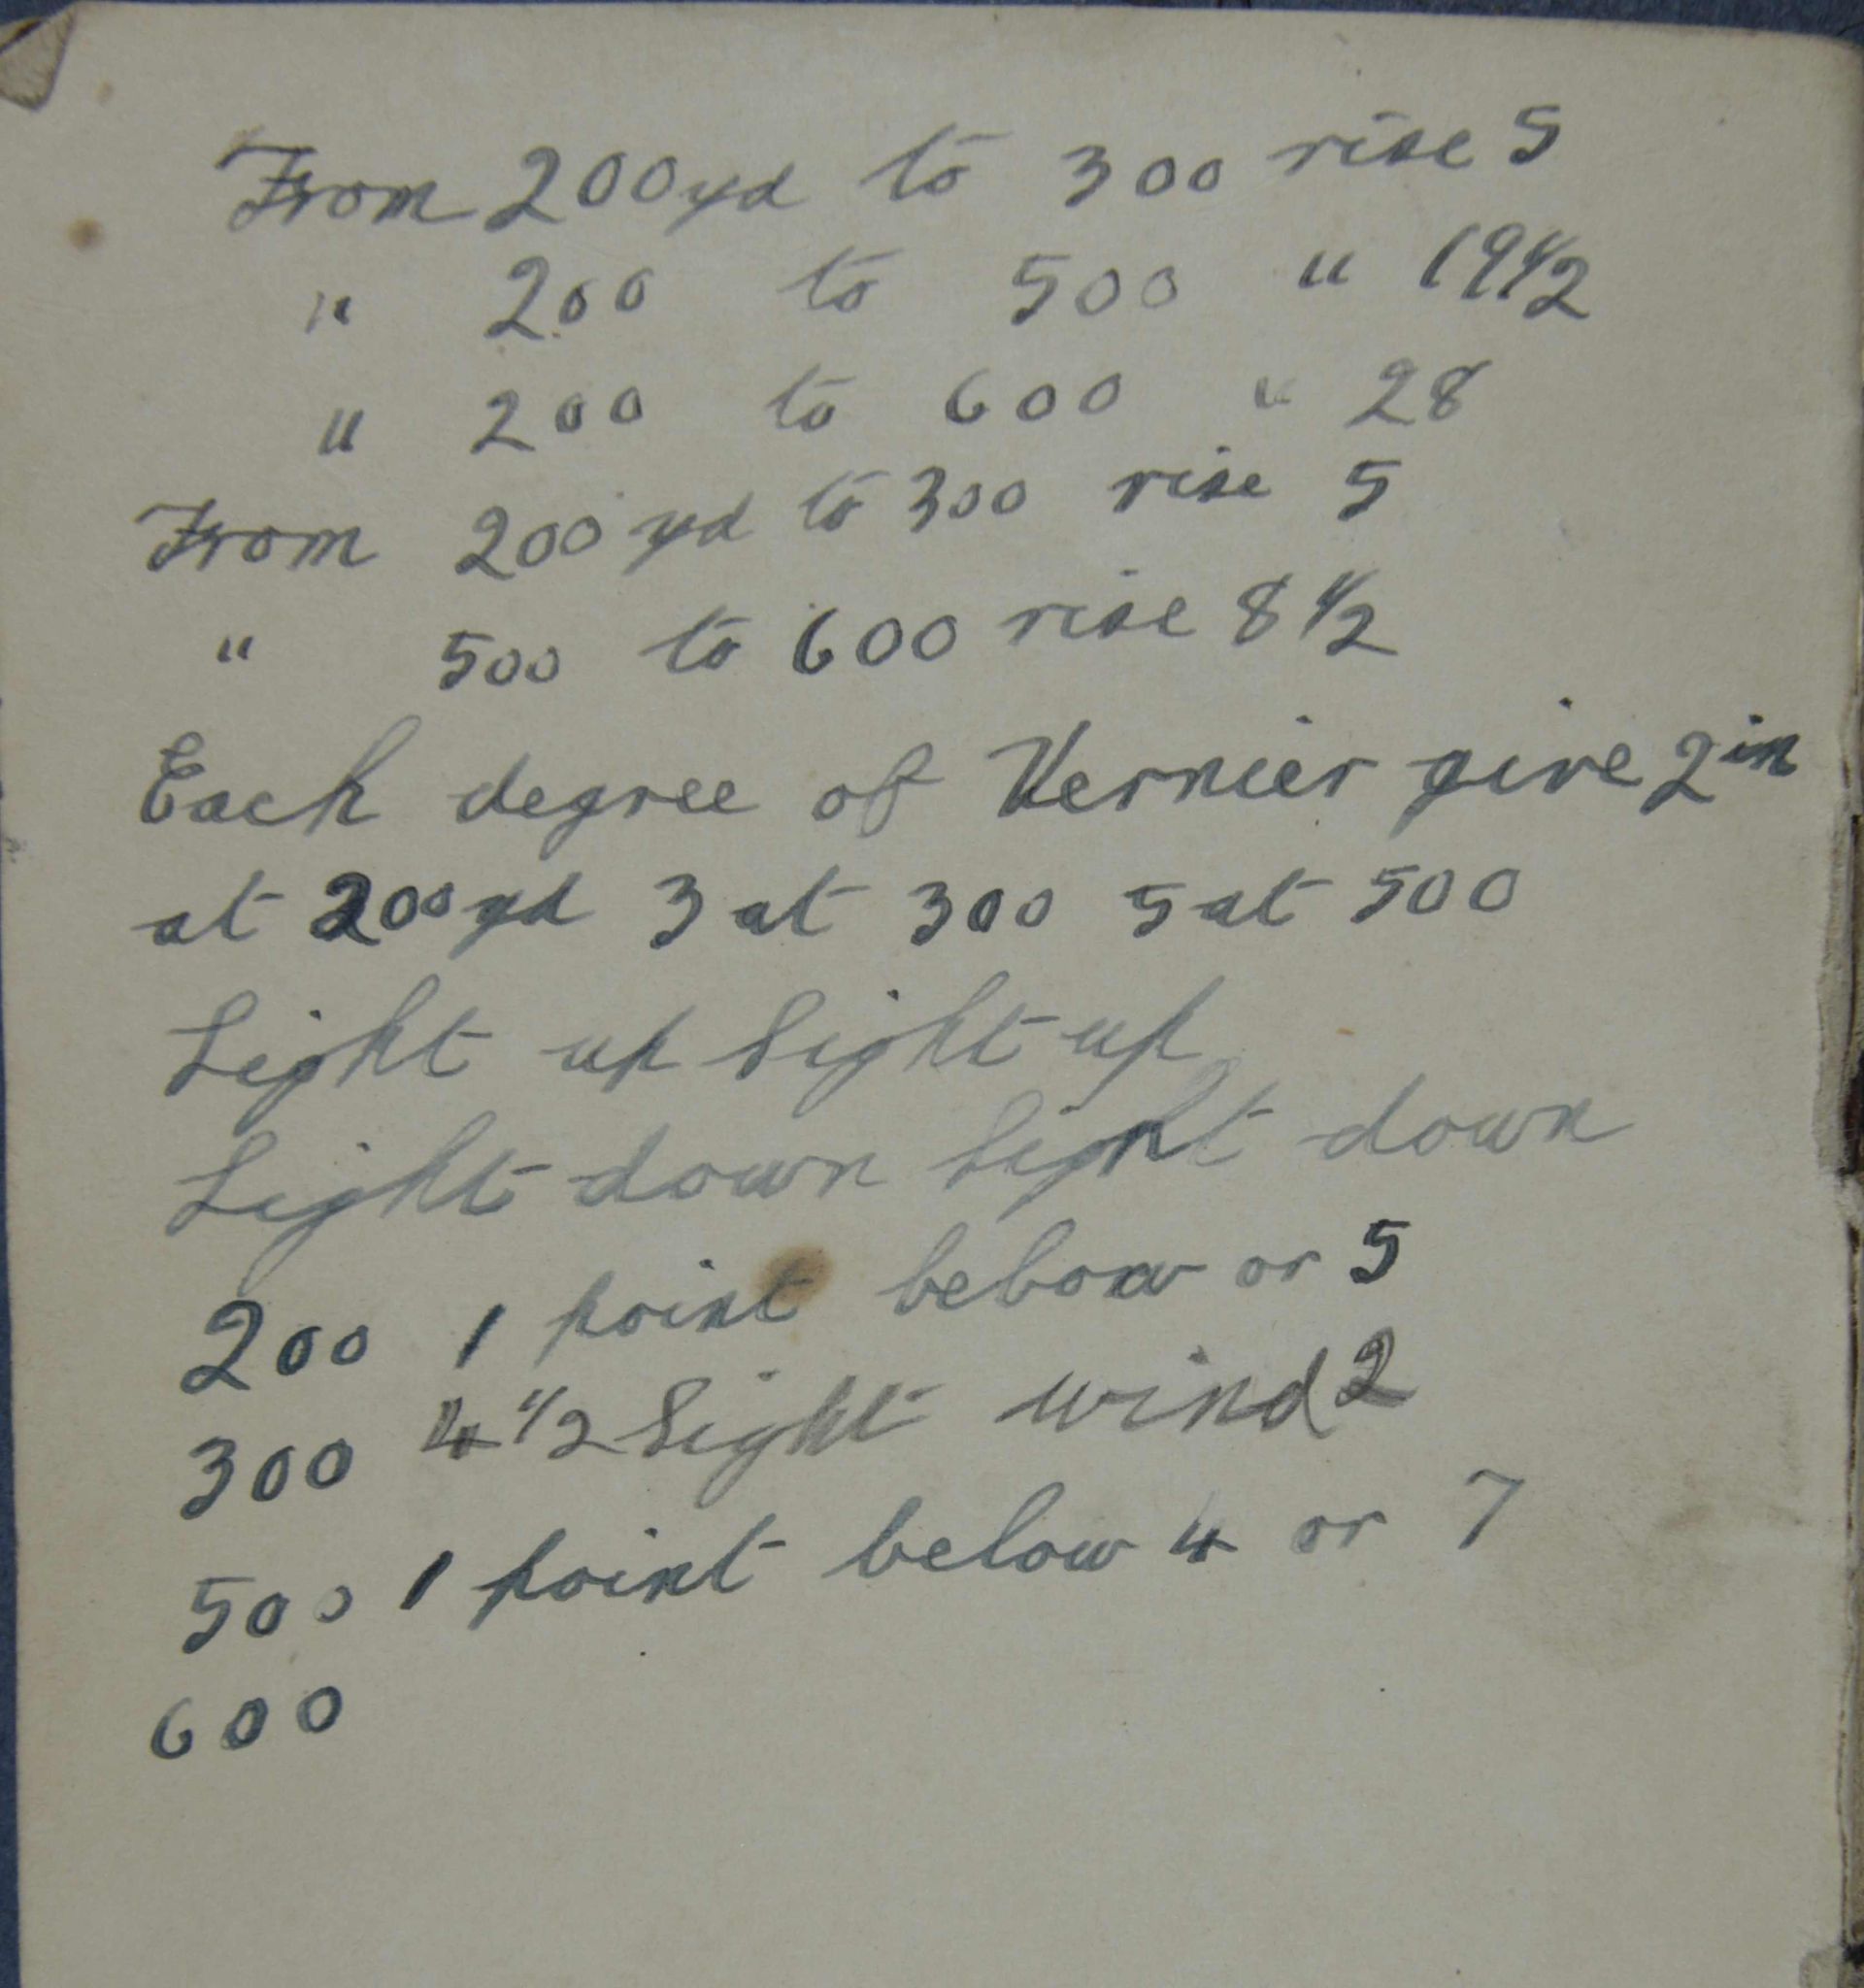 From 200 yd to 300 rise 5
" 200 to 500 " 19 1/2
" 200 to 600 " 28
From 200 yd to 300 rise 5
" 500 to 600 rise 8 1/2
Each degree of Vernier give 2 in
at 200 yd 3 at 300 5 at 500
Light up Sight up
Light down Sight down
200 1 point below or 5
300 4 1/2 Sight wind 2
500 1 point below 4 or 7
600